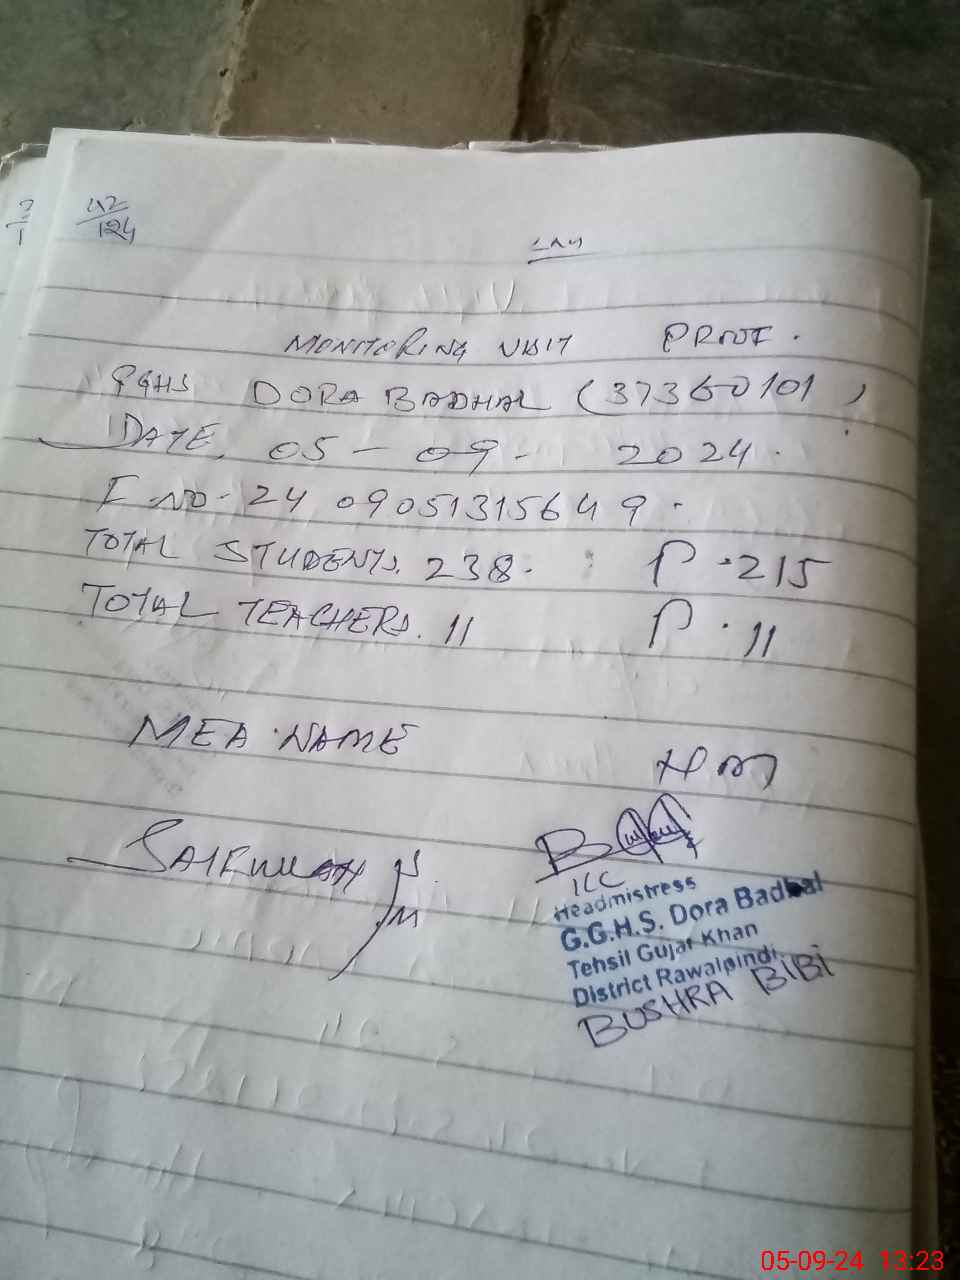 2
1
42
124
MONITORING VISIT PROOF.
GGHS DORA BADHAL (37360101)
DATE. 05 - 09 - 2024.
F NO - 24 09051315649.
TOTAL STUDENTS. 238. P. 215
TOTAL TEACHERS. 11 P. 11
MEA NAME
HM
SAIFULLAH
Headmistress
G.G.H.S. Dora Badhal
Tehsil Gujar Khan
District Rawalpindi
BUSHRA BIBI
05-09-24 13:23